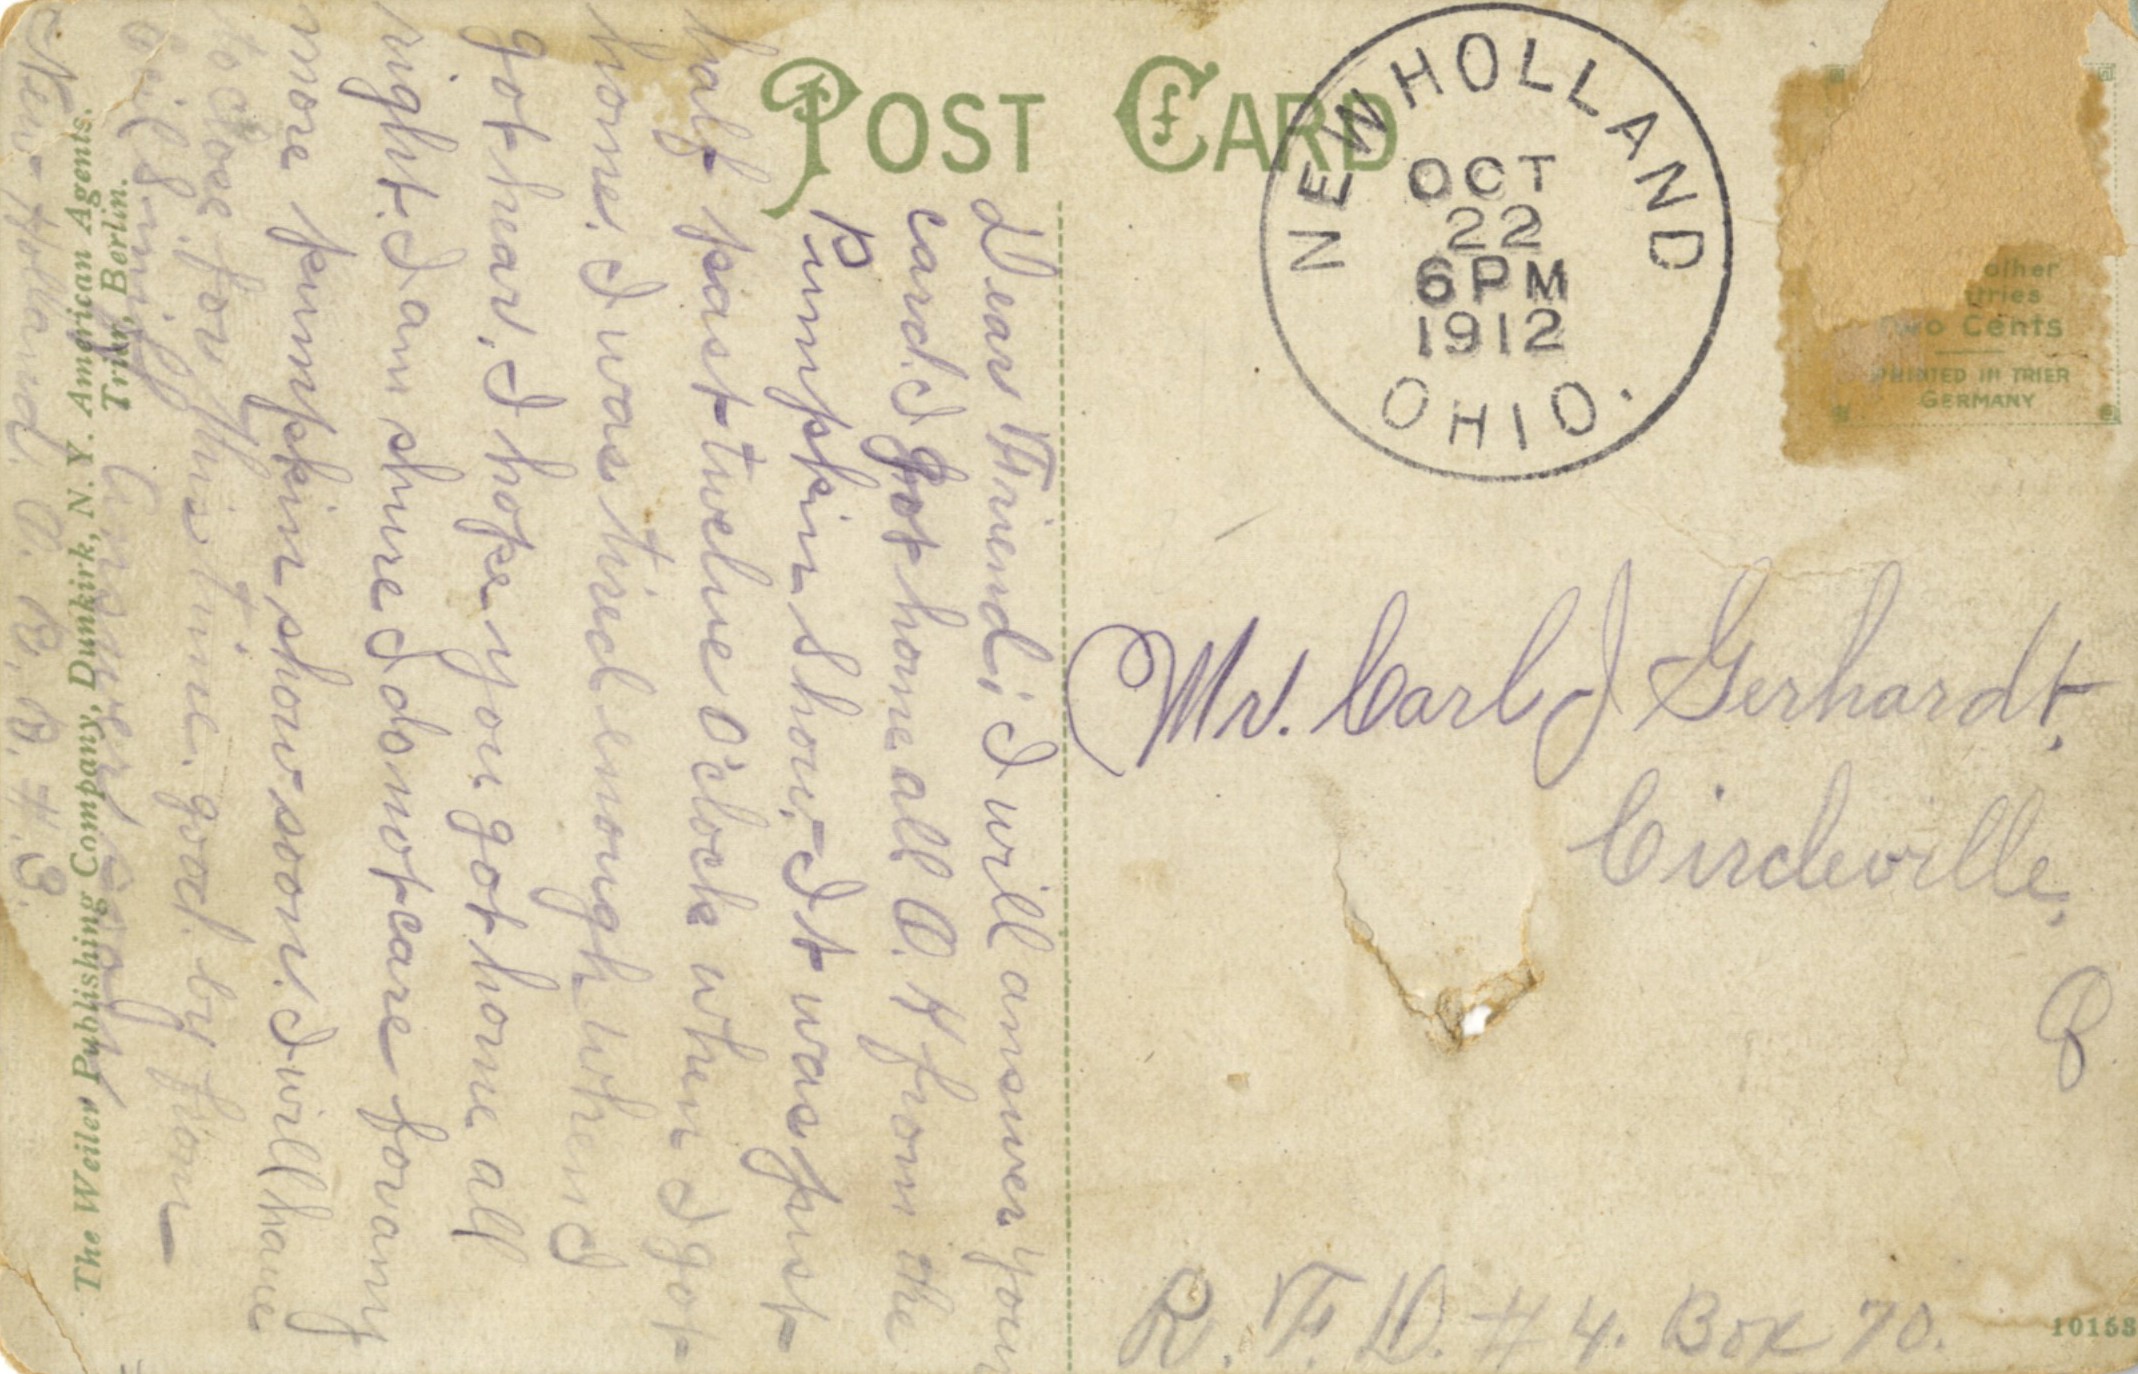 POST CARD
NEW HOLLAND
OCT
22
6 PM
1912
OHIO.
other
Two Cents
PRINTED IN TRIER
GERMANY
Mr. Carl J Gerhardt,
Circleville,
O
R. F. D. # 4. Box 70.
10158
Dear Friend; I will answer your
card. I got home all O. K from the
Pumpkin Show. It was just
half past twelve O'clock when I got
home. I was tired enough when I
got hear, I hope you got home all
right. I am shure I do not care for any
more pumpkin show soon. I will have
to close for this time. good by from
Emily
Answer soon
New Holland. O. R. R. # 3.
The Weiler Publishing Company, Dunkirk, N. Y. American Agents.
Trier, Berlin.